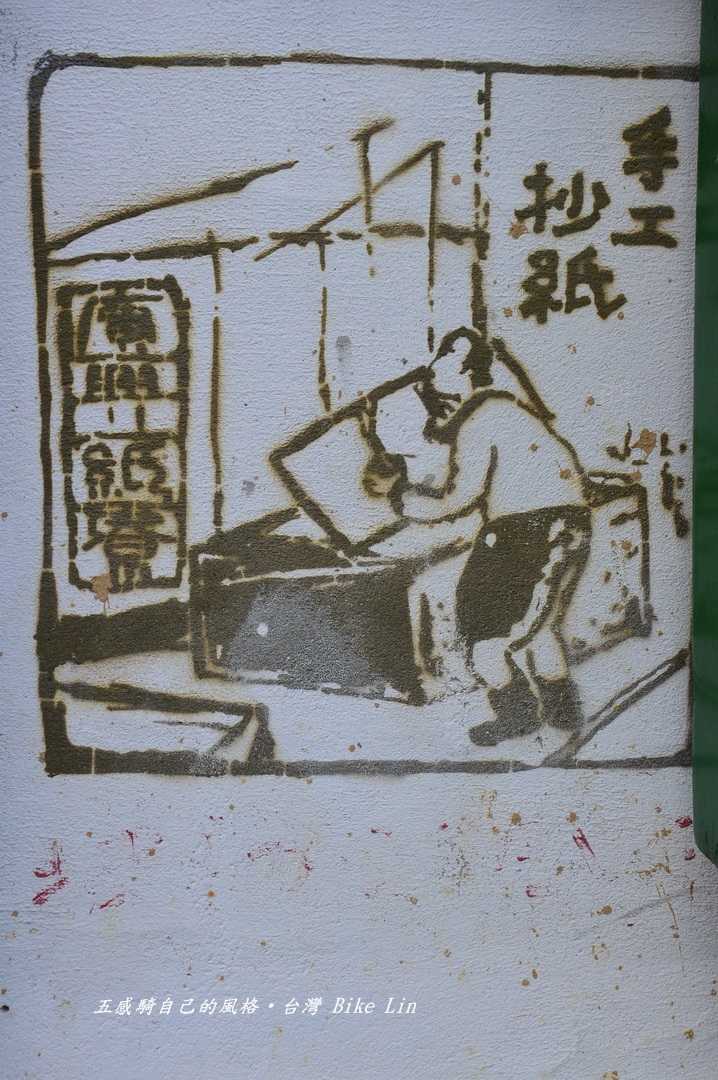 手工
抄紙
廣興紙寮
五感騎自己的風格・台灣 Bike Lin